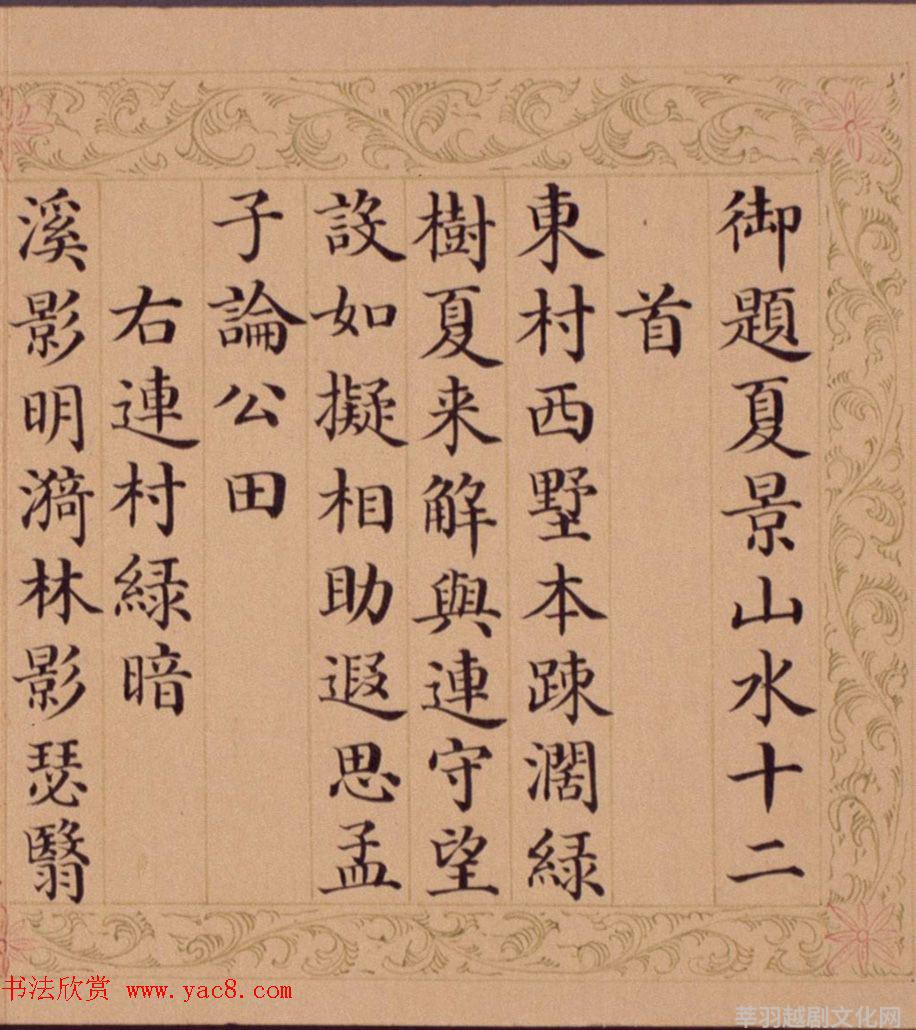 御題夏景山水十二
首
東村西墅本疎濶緑
樹夏来解與連守望
設如擬相助遐思孟
子論公田
右連村緑暗
溪影明漪林影瑟翳
书法欣赏 www.yac8.com
莘羽越剧文化网